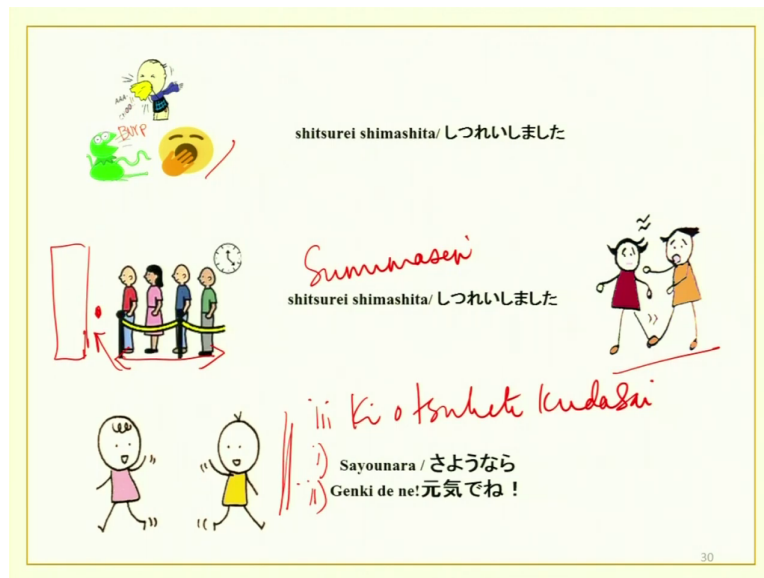 AAA
CHOO
BURP
shitsurei shimashita/ しつれいしました
Sumimasen
shitsurei shimashita/ しつれいしました
iii Ki o tsukete kudasai
i) Sayounara / さようなら
ii) Genki de ne!元気でね！
30